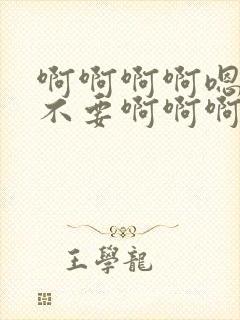 啊啊啊啊嗯
不要啊啊啊
王學龍